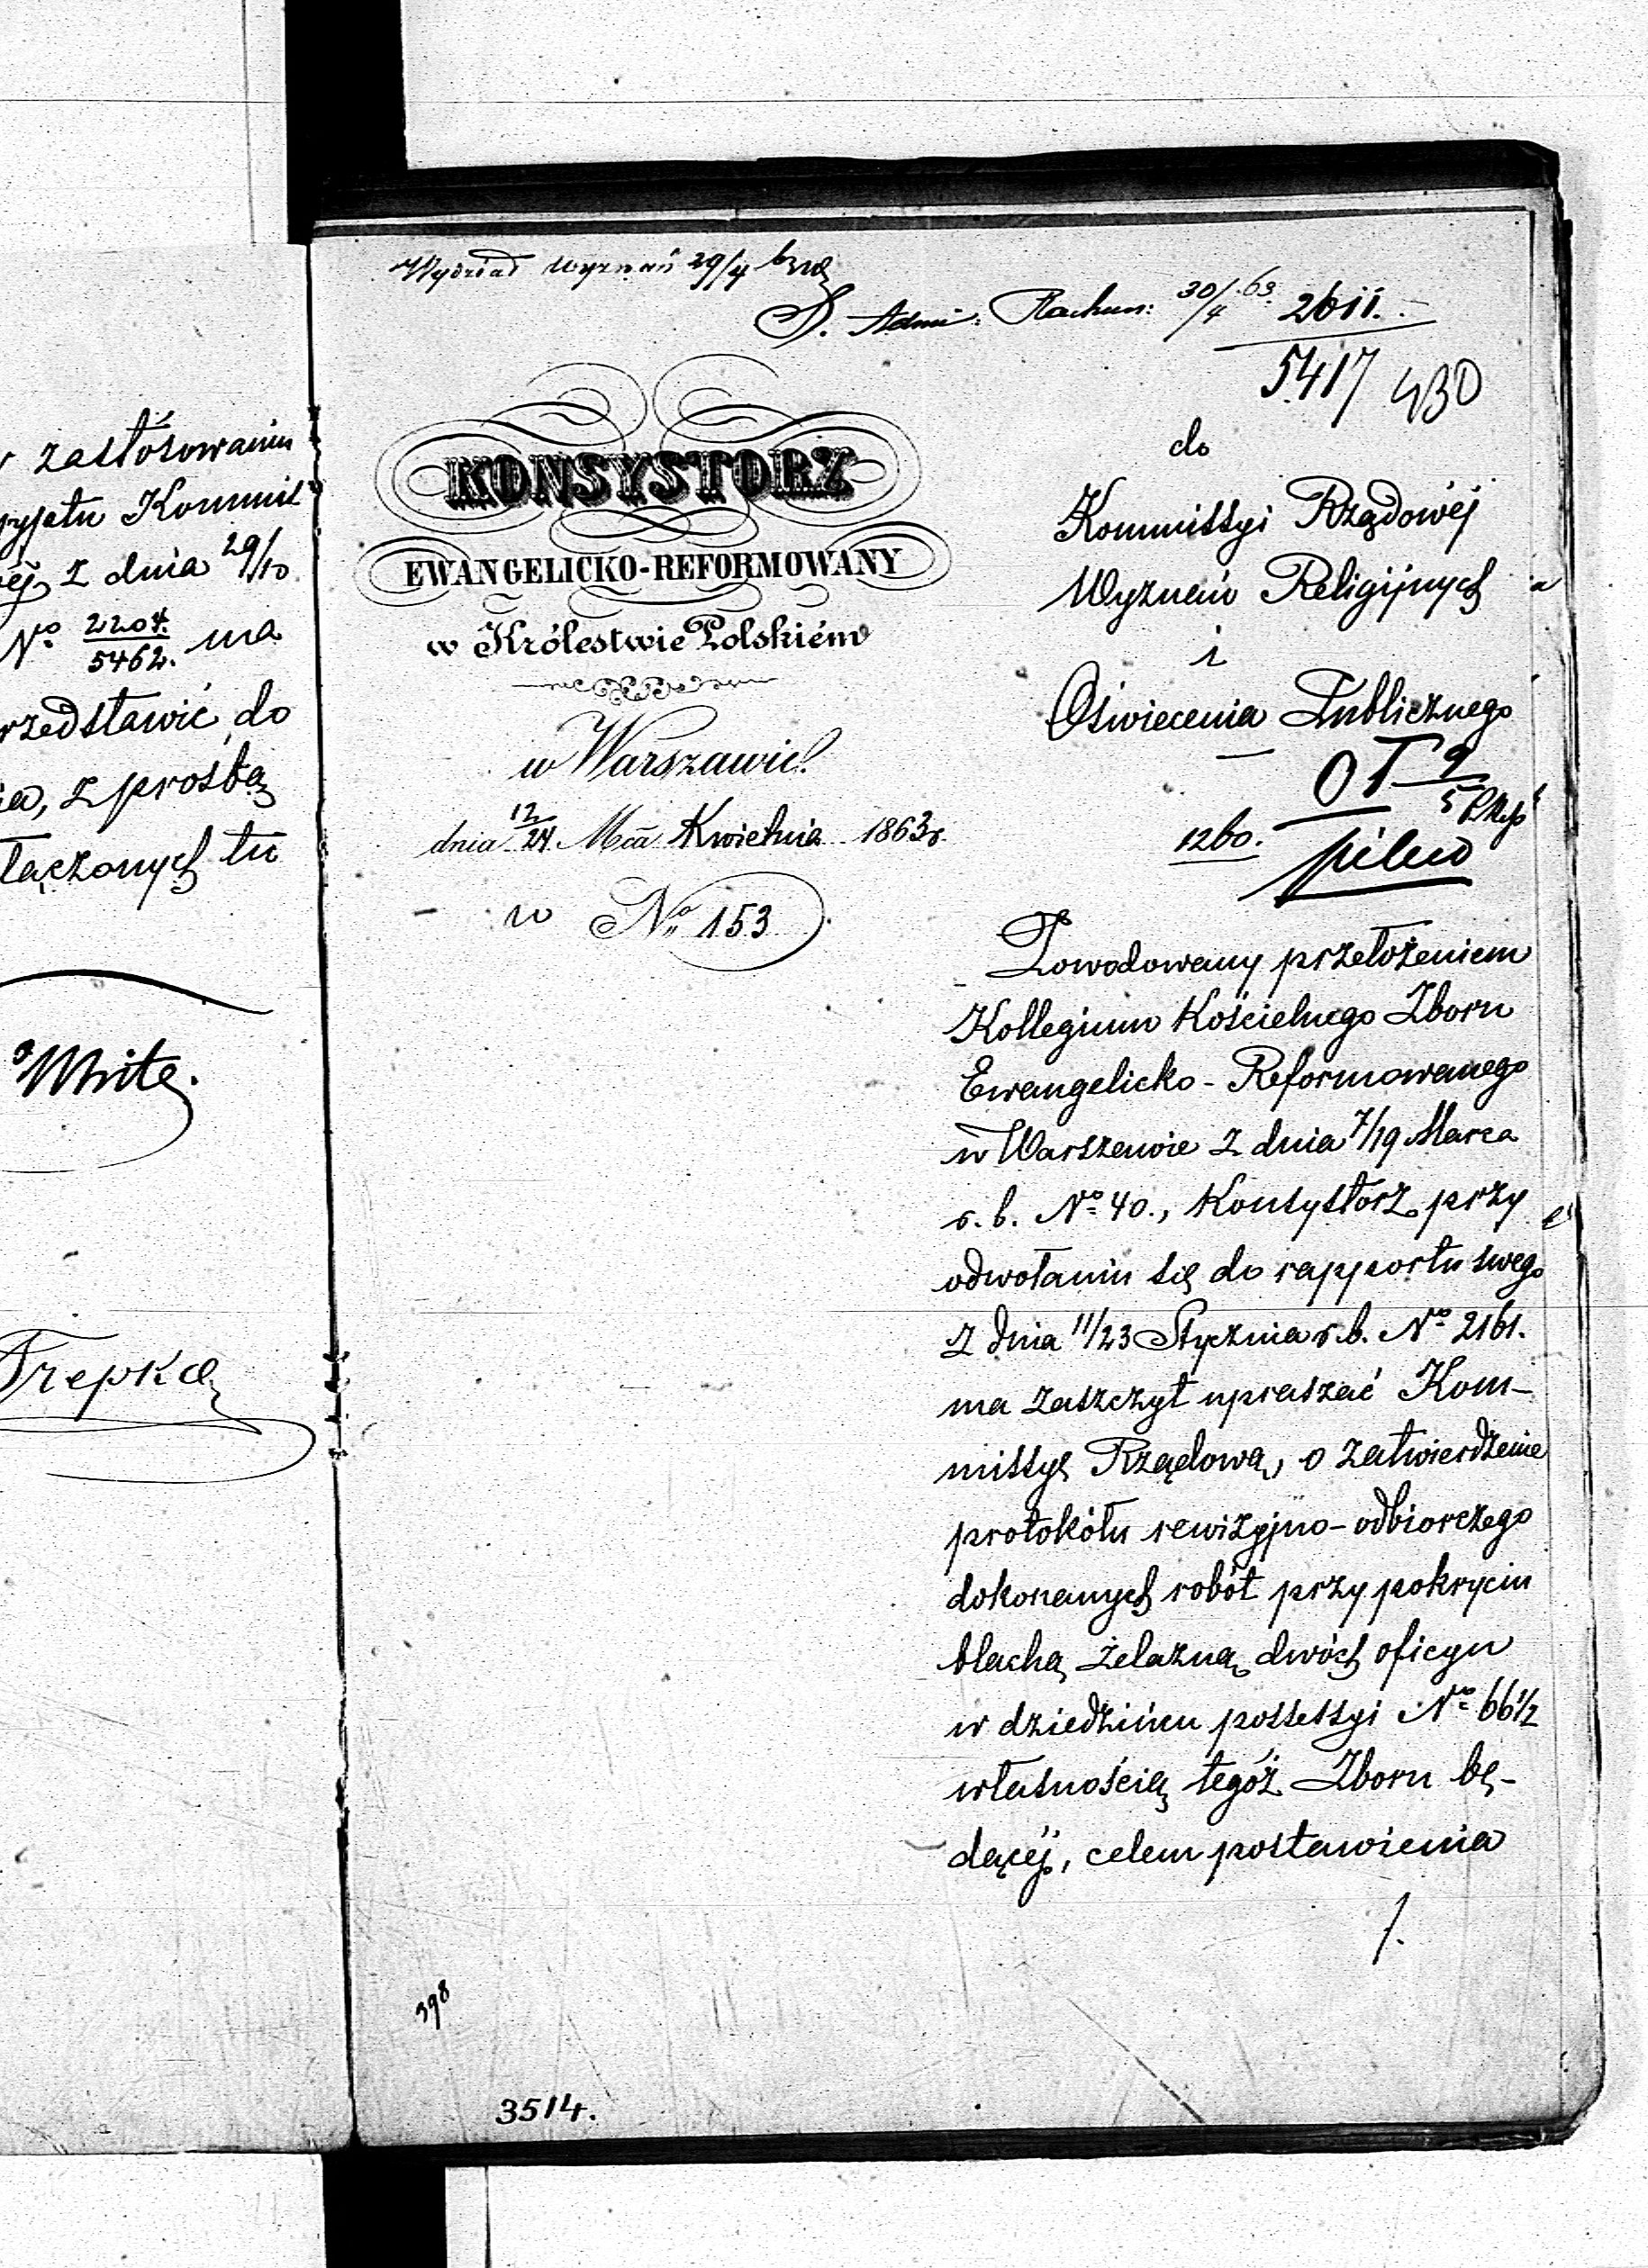 w zastósowaniu
Kommis
z dnia 29/10
No 2204/5462. ma
rzedstawić do
ia, z prośbą
łączonych tu
White.
Trepka
Wydział Wyznań 29/4
S. Admi: Rachun: 30/4 63. 2611.
5417 430
KONSYSTORZ
EWANGELICKO-REFORMOWANY
w Królestwie Polskiém
w Warszawie.
dnia 12/24 Mca Kwietnia 1863 r.
No 153
do
Kommissyi Rządowéj
Wyznań Religijnych
i
Oświecenia Publicznego
OT 9/5
1260.
pilno
Powodowany przełożeniem
Kollegium Kościelnego Zboru
Ewangelicko-Reformowanego
w Warszawie z dnia 7/19 Marca
r. b. No 40., Konsystorz przy
odwołaniu się do rapportu swego
z dnia 11/23 Stycznia r. b. No 2161.
ma zaszczyt upraszać Kom-
missyę Rządową, o zatwierdzenie
protokółu rewizyjno-odbiorczego
dokonanych robót przy pokryciu
blachą żelazną dwóch oficyn
w dziedzińcu possessyi No 66½
własnością tegóż Zboru bę-
dącéj, celem postawienia
/.
398
3514.